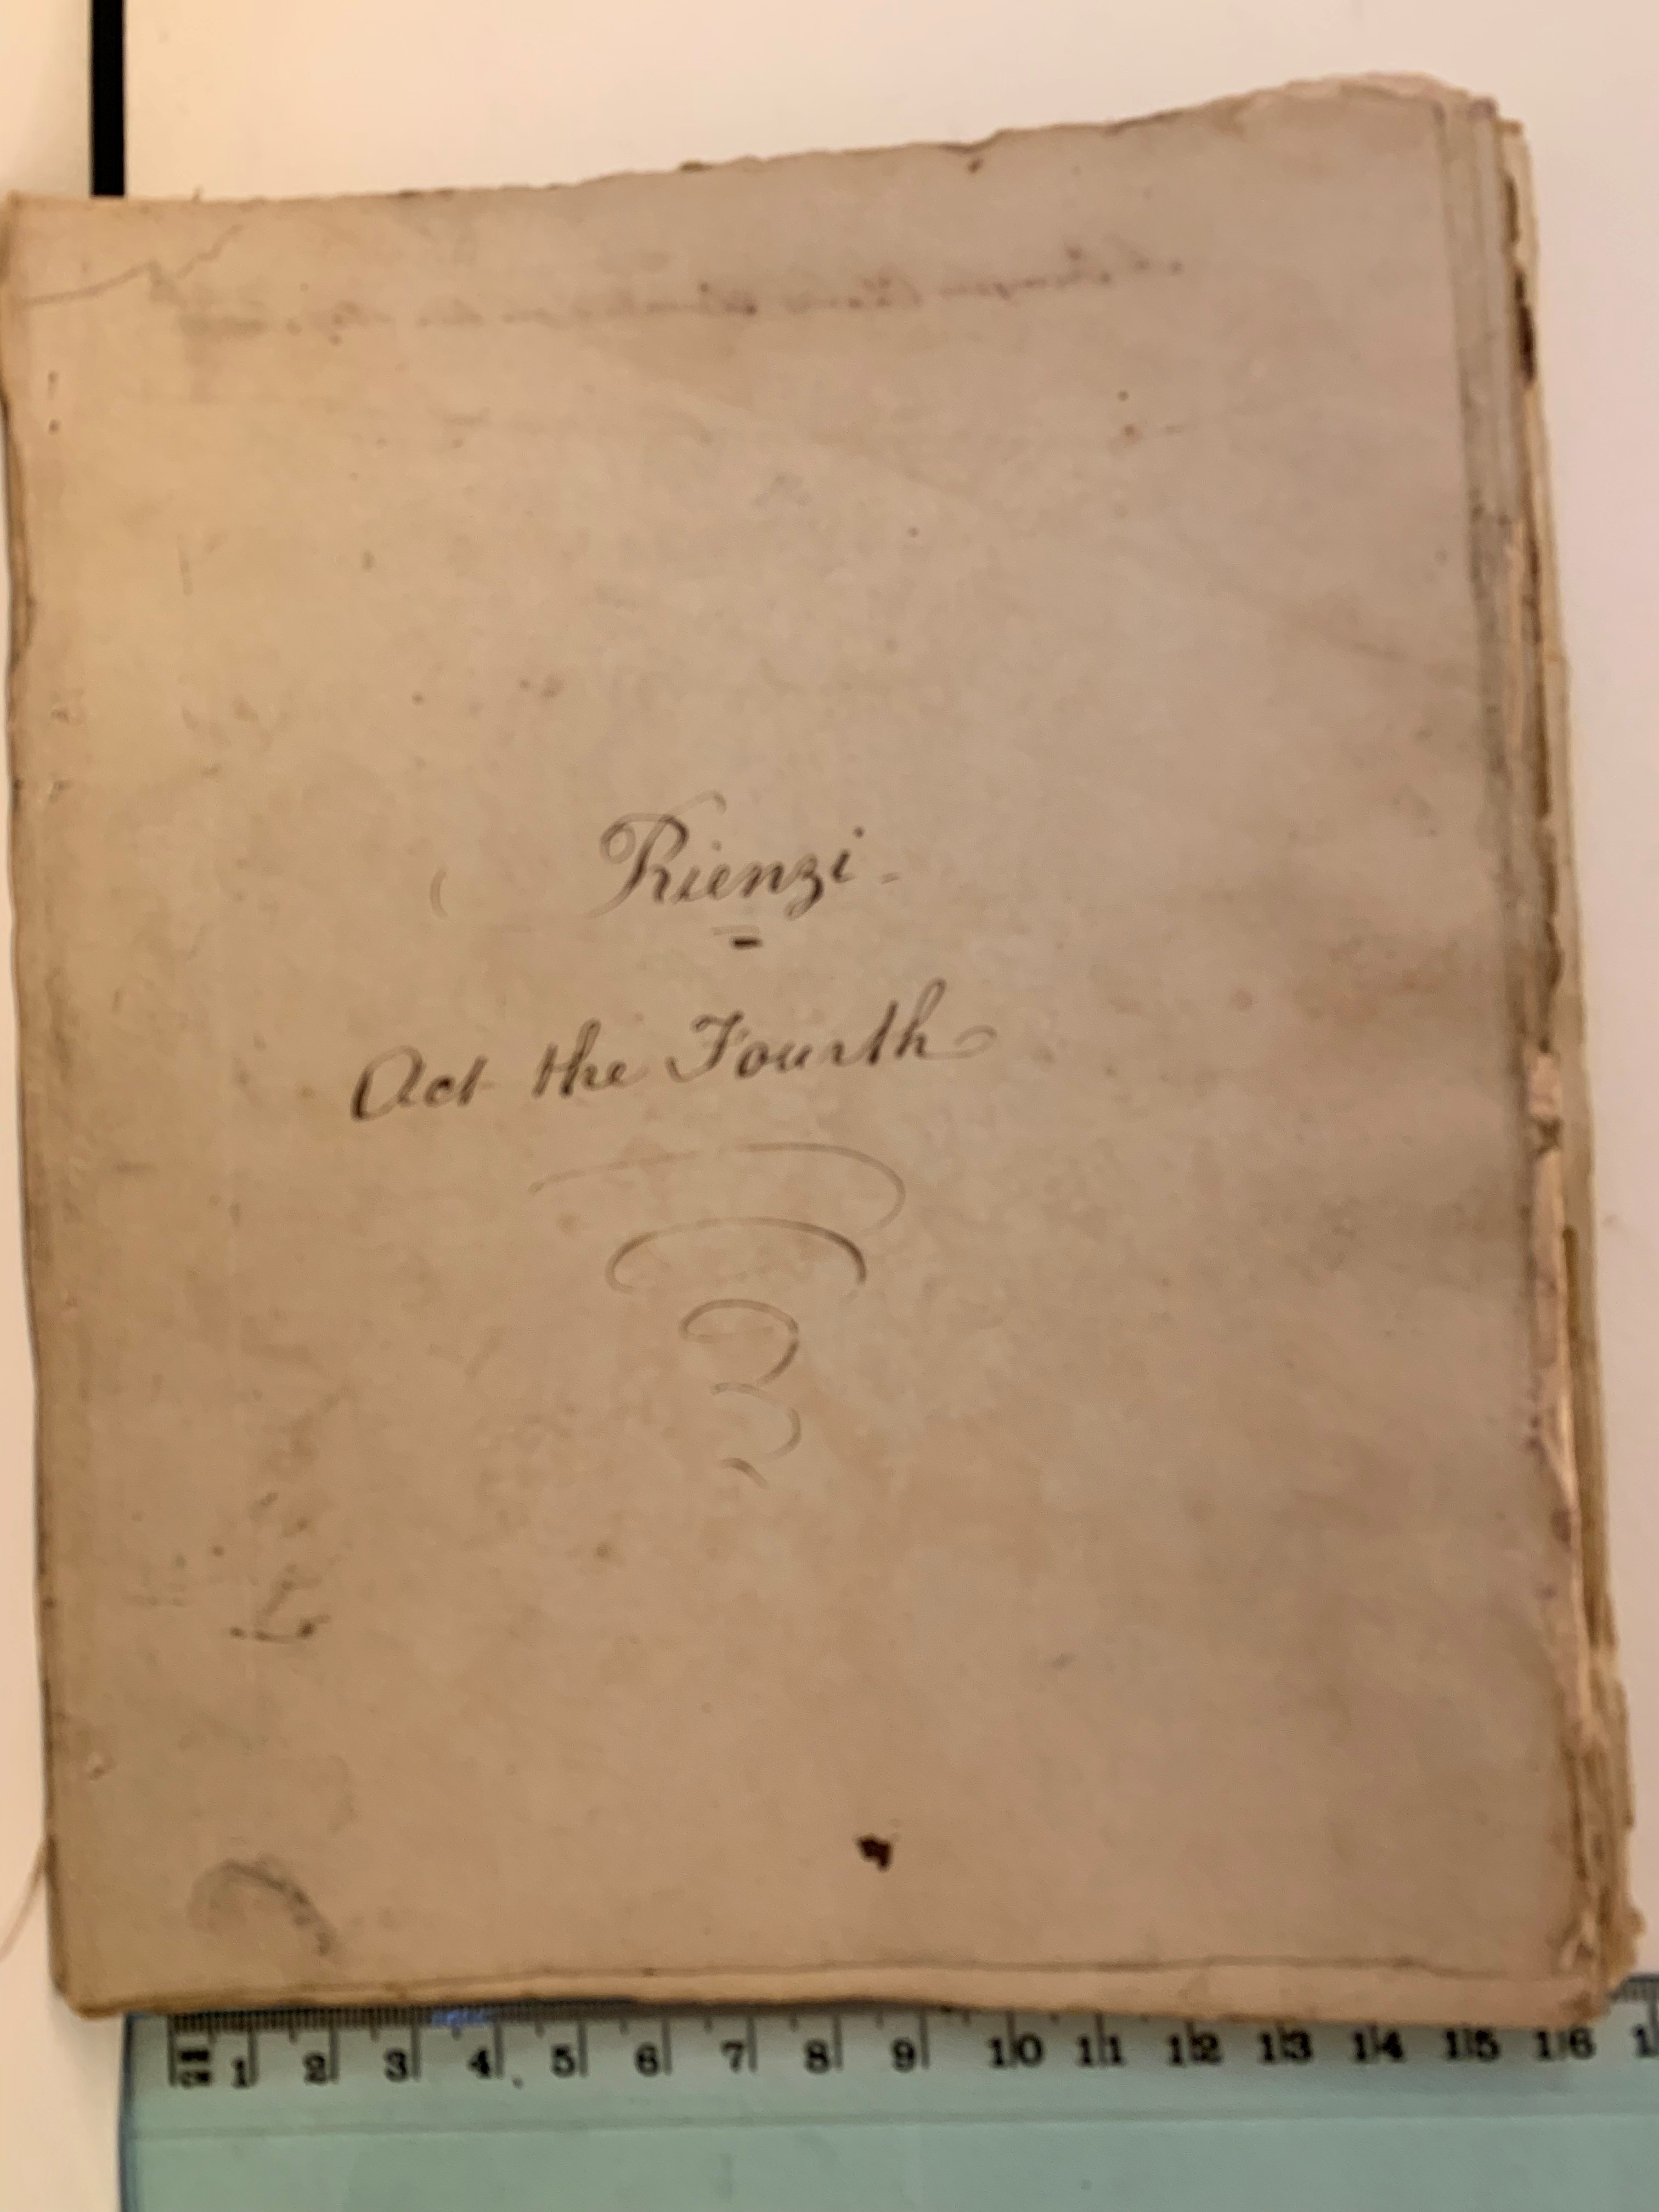 Rienzi -
Act the Fourth
cm 1 2 3 4 5 6 7 8 9 10 11 12 13 14 15 16